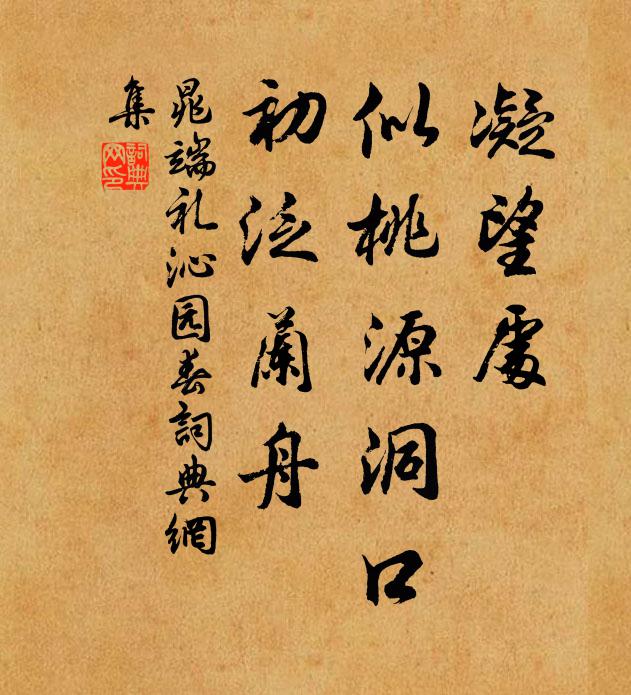 凝望處
似桃源洞口
初泛蘭舟
晁端礼沁园春詞典網
集
詞典
网印